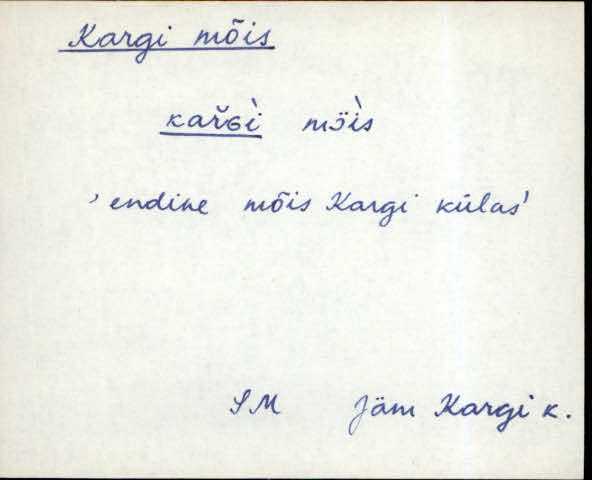 Kargi mõis
kar̆ɢì mɔ̈ìs
‚endine mõis Kargi külas’
SM Jäm Kargi k.